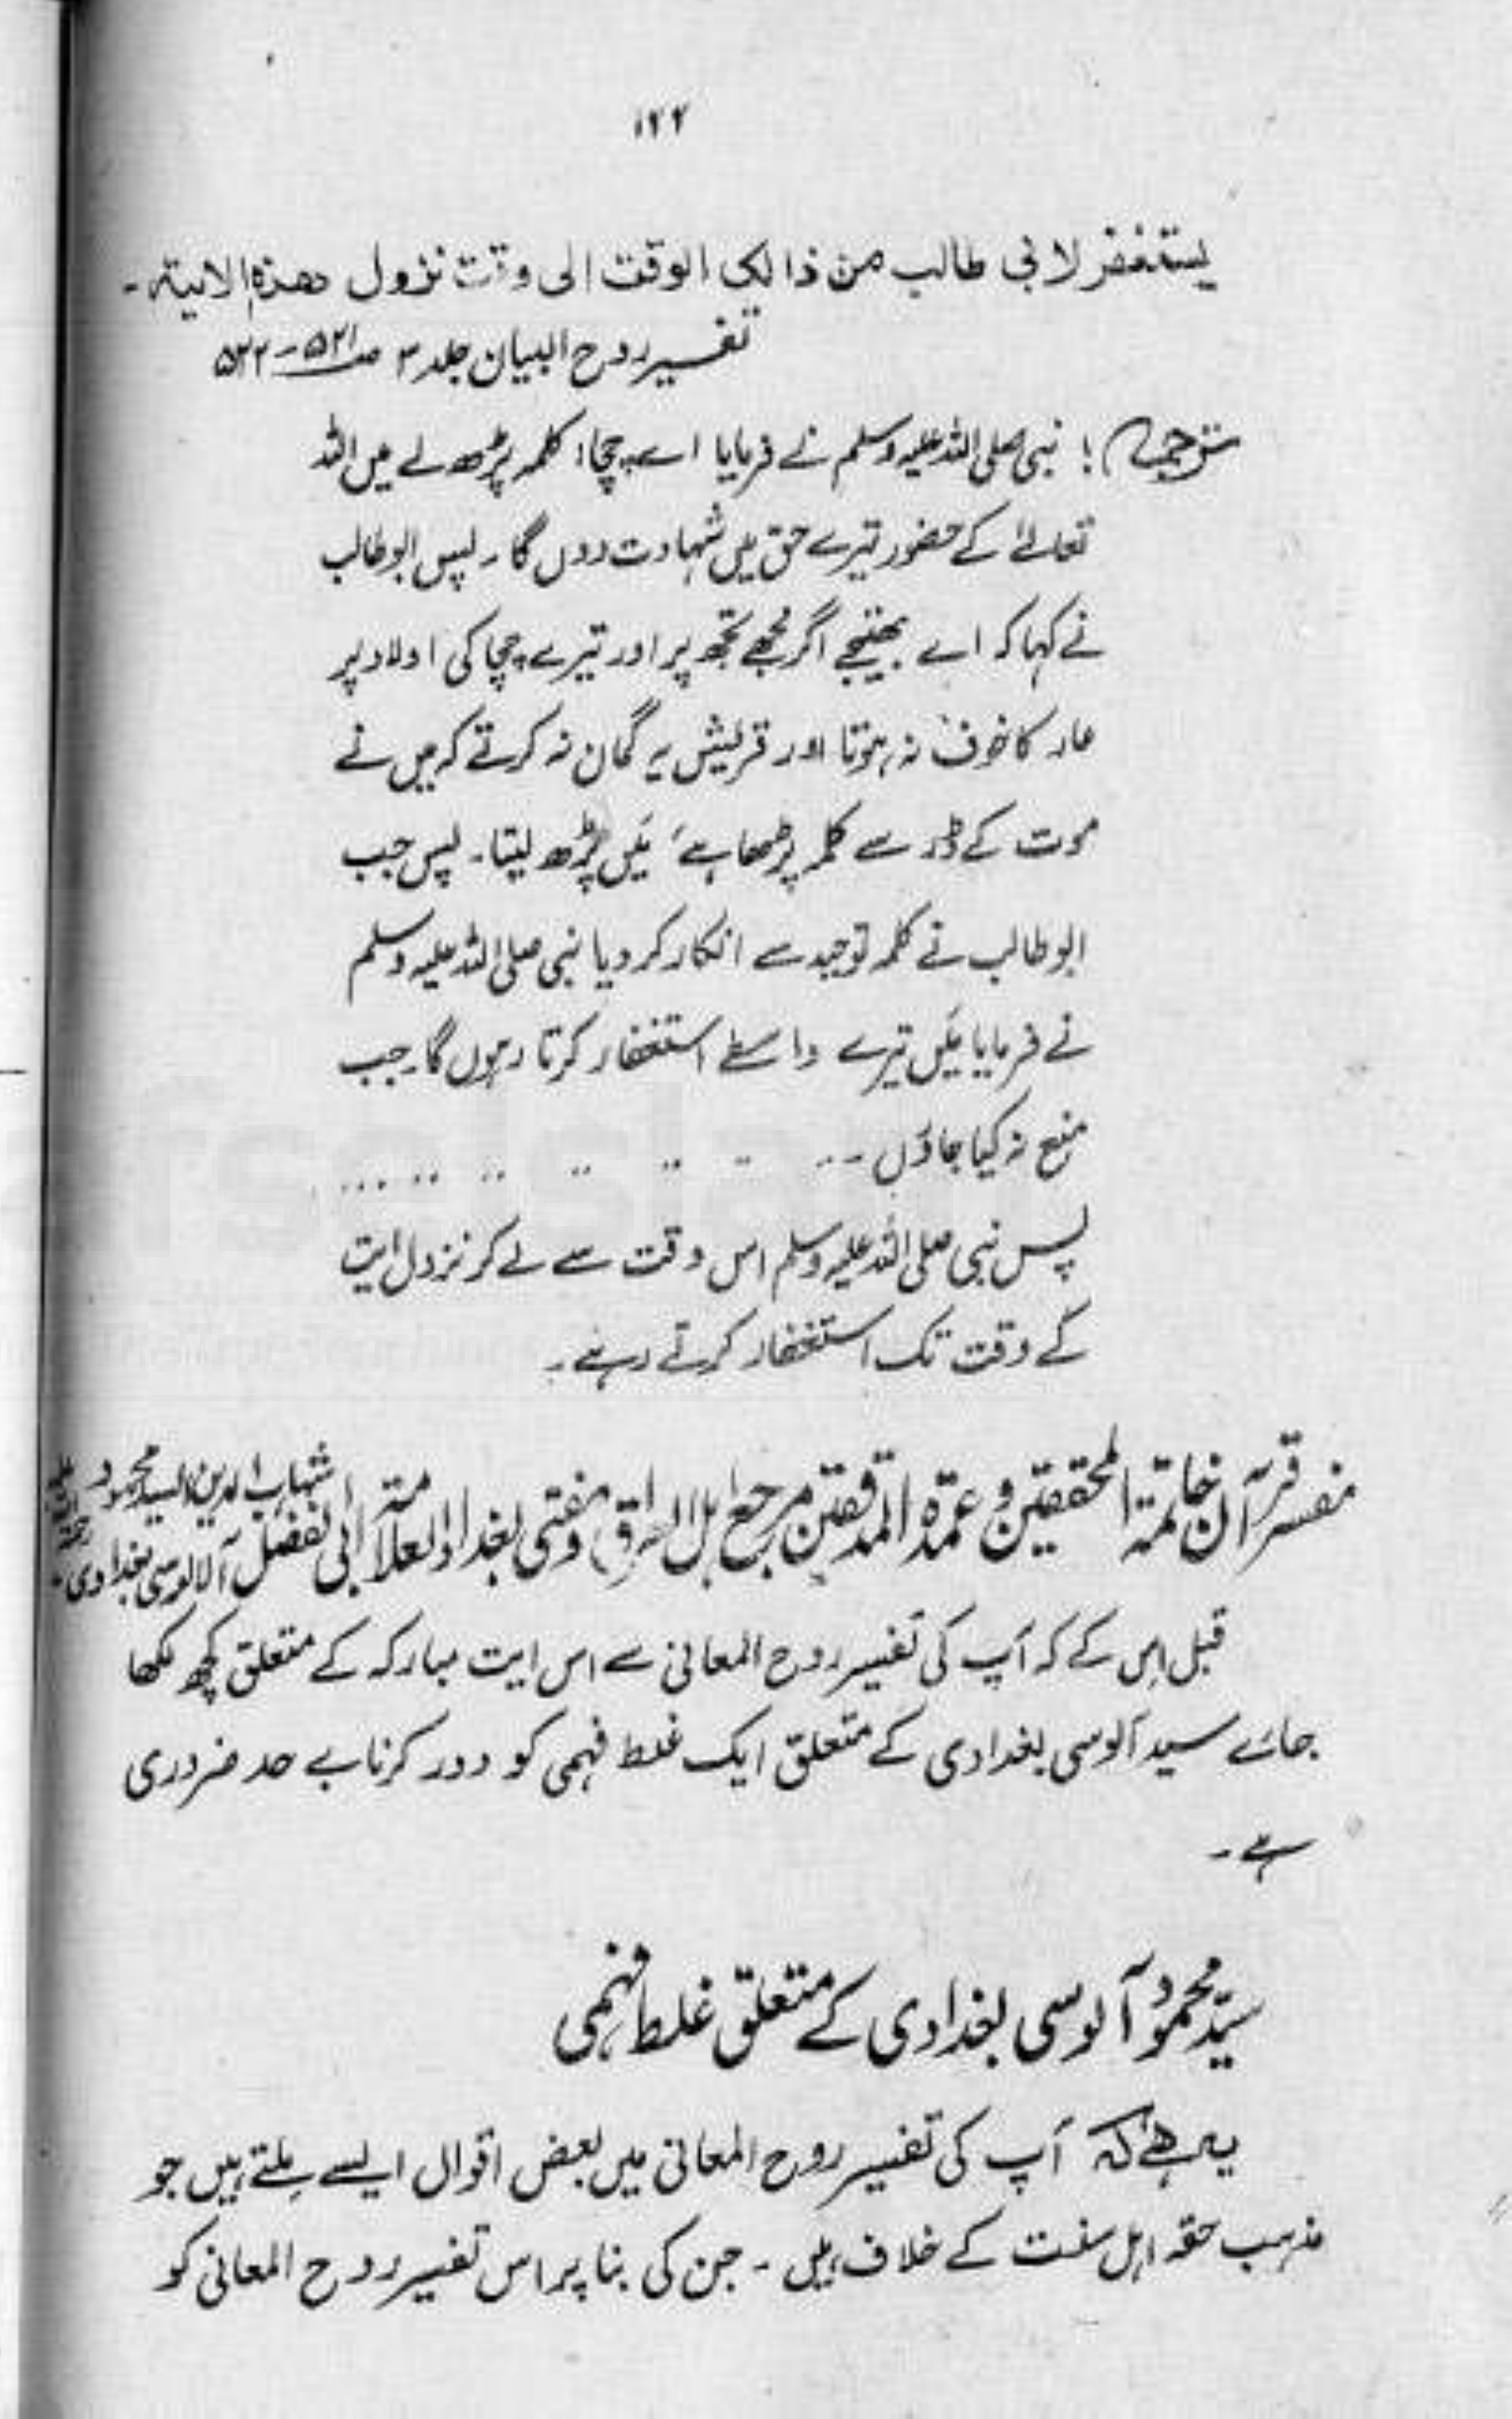 ۱۲۲
یستغفر لابی طالب من ذالک الوقت الی وقت نزول ھذہ الایتہ۔
تفسیر روح البیان جلد ۳ صـ ۵۲۱ - ۵۲۲
ترجمہ! نبی صلی اللہ علیہ وسلم نے فرمایا اے چچا! کلمہ پڑھ لے میں اللہ
تعالےٰ کے حضور تیرے حق میں شہادت دوں گا۔ پس ابوطالب
نے کہا کہ اے بھتیجے اگر مجھے تجھ پر اور تیرے چچا کی اولاد پر
عار کا خوف نہ ہوتا اور قریش یہ گمان نہ کرتے کہ میں نے
موت کے ڈر سے کلمہ پڑھا ہے، میں پڑھ لیتا۔ پس جب
ابوطالب نے کلمہ توحید سے انکار کر دیا نبی صلی اللہ علیہ وسلم
نے فرمایا میں تیرے واسطے استغفار کرتا رہوں گا۔ جب
منع نہ کیا جاؤں ۔۔ ۔۔ ۔۔ ۔۔ ۔۔ ۔۔ ...
پس نبی صلی اللہ علیہ وسلم اس وقت سے لے کر نزول ایت
کے وقت تک استغفار کرتے رہے۔
مفسر قرآن خاتمۃ المحققین و عمدۃ المدققین مرجع اہل العراق و مفتی بغداد العلامۃ ابی الفضل شہاب الدین السید محمود آلالوسی بغدادی
قبل اس کے کہ آپ کی تفسیر روح المعانی سے اس ایت مبارکہ کے متعلق کچھ لکھا
جائے سید آلوسی بغدادی کے متعلق ایک غلط فہمی کو دور کرنا بے حد ضروری
ہے۔
سیّد محمود آلوسی بغدادی کے متعلق غلط فہمی
یہ ہے کہ آپ کی تفسیر روح المعانی میں بعض اقوال ایسے ملتے ہیں جو
مذہب حقہ اہل سنت کے خلاف ہیں۔ جن کی بنا پر اس تفسیر روح المعانی کو